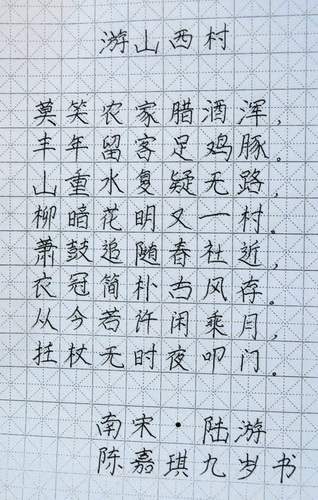 游山西村
莫笑农家腊酒浑，
丰年留客足鸡豚。
山重水复疑无路，
柳暗花明又一村。
萧鼓追随春社近，
衣冠简朴古风存。
从今若许闲乘月，
拄杖无时夜叩门。
南宋·陆游
陈嘉琪九岁书